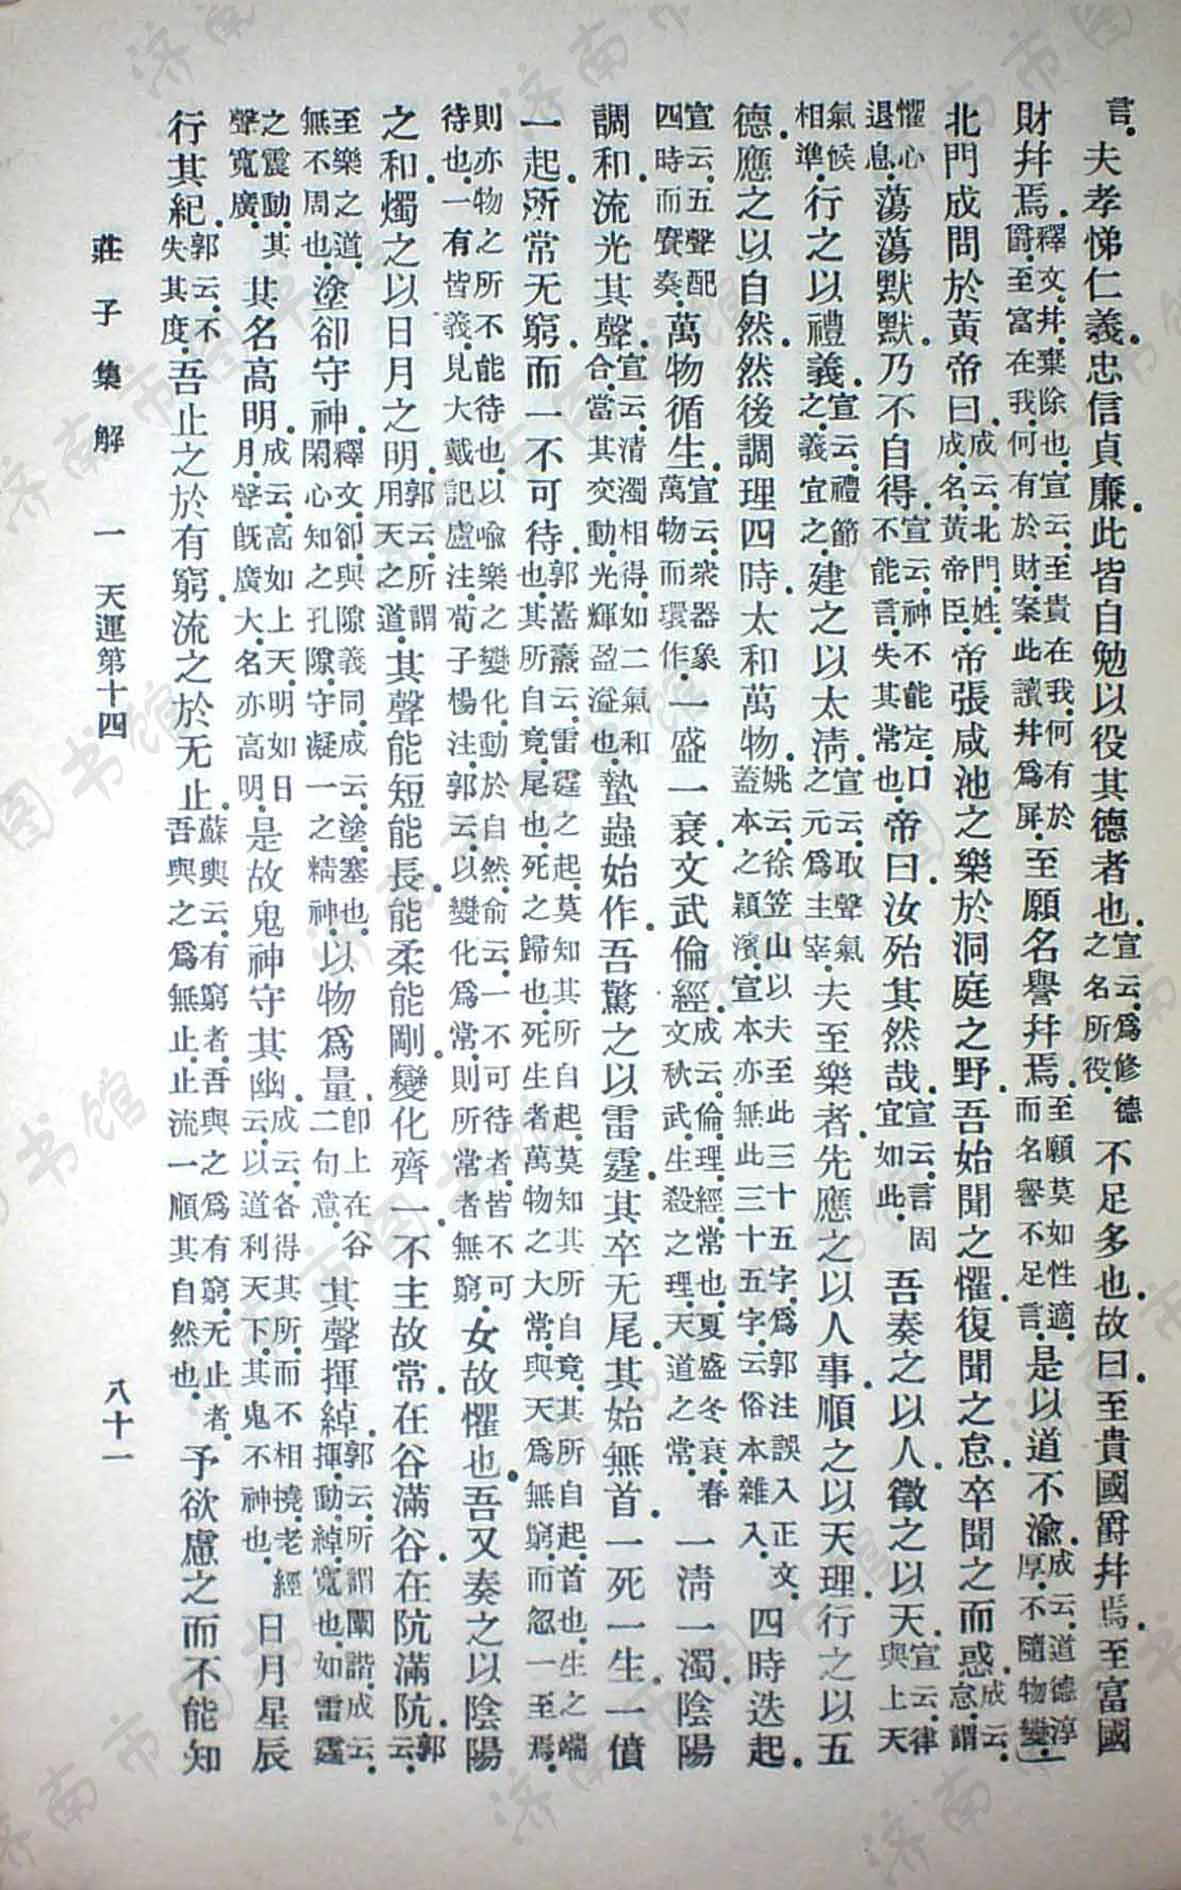 言。夫孝悌仁義。忠信貞廉。此皆自勉以役其德者也。宣云。爲修德之名所役。不足多也。故曰。至貴國爵幷焉。至富國
財幷焉。釋文。幷。棄除也。宣云。至貴在我。何有於爵。至富在我。何有於財。案此讀幷爲屏。至願名譽幷焉。至願莫如性適。而名譽不足言。是以道不渝。成云。道德淳厚。不隨物變。」
北門成問於黃帝曰。成云。北門姓。成名。黃帝臣。帝張咸池之樂於洞庭之野。吾始聞之懼。復聞之怠。卒聞之而惑。成云。怠。謂
懼心退息。蕩蕩默默。乃不自得。宣云。神不能定。口不能言。失其常也。帝曰。汝殆其然哉。宣云。言固宜如此。吾奏之以人。徵之以天。宣云。律與上天
氣候相準。行之以禮義。宣云。禮節之。義宜之。建之以太清。宣云。取聲氣之元爲主宰。夫至樂者。先應之以人事。順之以天理。行之以五
德。應之以自然。然後調理四時。太和萬物。姚云。徐笠山以夫至此三十五字。爲郭注誤入正文。蓋本之穎濱。宣本亦無此三十五字。云俗本雜入。四時迭起。
宣云。五聲配四時而賡奏。萬物循生。宣云。衆器象萬物而環作。一盛一衰。文武倫經。成云。倫理。經常也。夏盛冬衰。春文秋武。生殺之理。天道之常。一清一濁。陰陽
調和。流光其聲。宣云。清濁相得。如二氣和合。當其交動。光輝盈溢也。蟄蟲始作。吾驚之以雷霆。其卒无尾。其始無首。一死一生。一僨
一起。所常无窮。而一不可待。郭嵩燾云。雷霆之起。莫知其所自起。莫知其所自竟。其所自起。首也。生之端也。其所自竟。尾也。死之歸也。死生者。萬物之大常。與天爲無窮。而忽一至焉。
則亦物之所不能待也。以喻樂之變化。動於自然。俞云。一不可待者。皆不可待也。一有皆義。見大戴記盧注。荀子楊注。郭云。以變化爲常。則所常者無窮。女故懼也。吾又奏之以陰陽
之和。燭之以日月之明。郭云。所謂用天之道。其聲能短能長。能柔能剛。變化齊一。不主故常。在谷滿谷。在阬滿阬。郭云。
至樂之道。無不周也。塗卻守神。釋文。卻。與隙義同。成云。塗。塞也。閑心知之孔隙。守凝一之精神。以物爲量。卽上在谷二句意。其聲揮綽。郭云。所謂闡諧。成云。揮。動。綽。寬也。如雷霆
之震動。其聲寬廣。其名高明。成云。高如上天。明如日月。聲旣廣大。名亦高明。是故鬼神守其幽。成云。各得其所。而不相撓。老經云。以道利天下。其鬼不神也。日月星辰
行其紀。郭云。不失其度。吾止之於有窮。流之於无止。蘇輿云。有窮者。吾與之爲有窮。无止者。吾與之爲無止。止流一順其自然也。予欲慮之而不能知
莊子集解 一 天運第十四 八十一
济南市图书馆